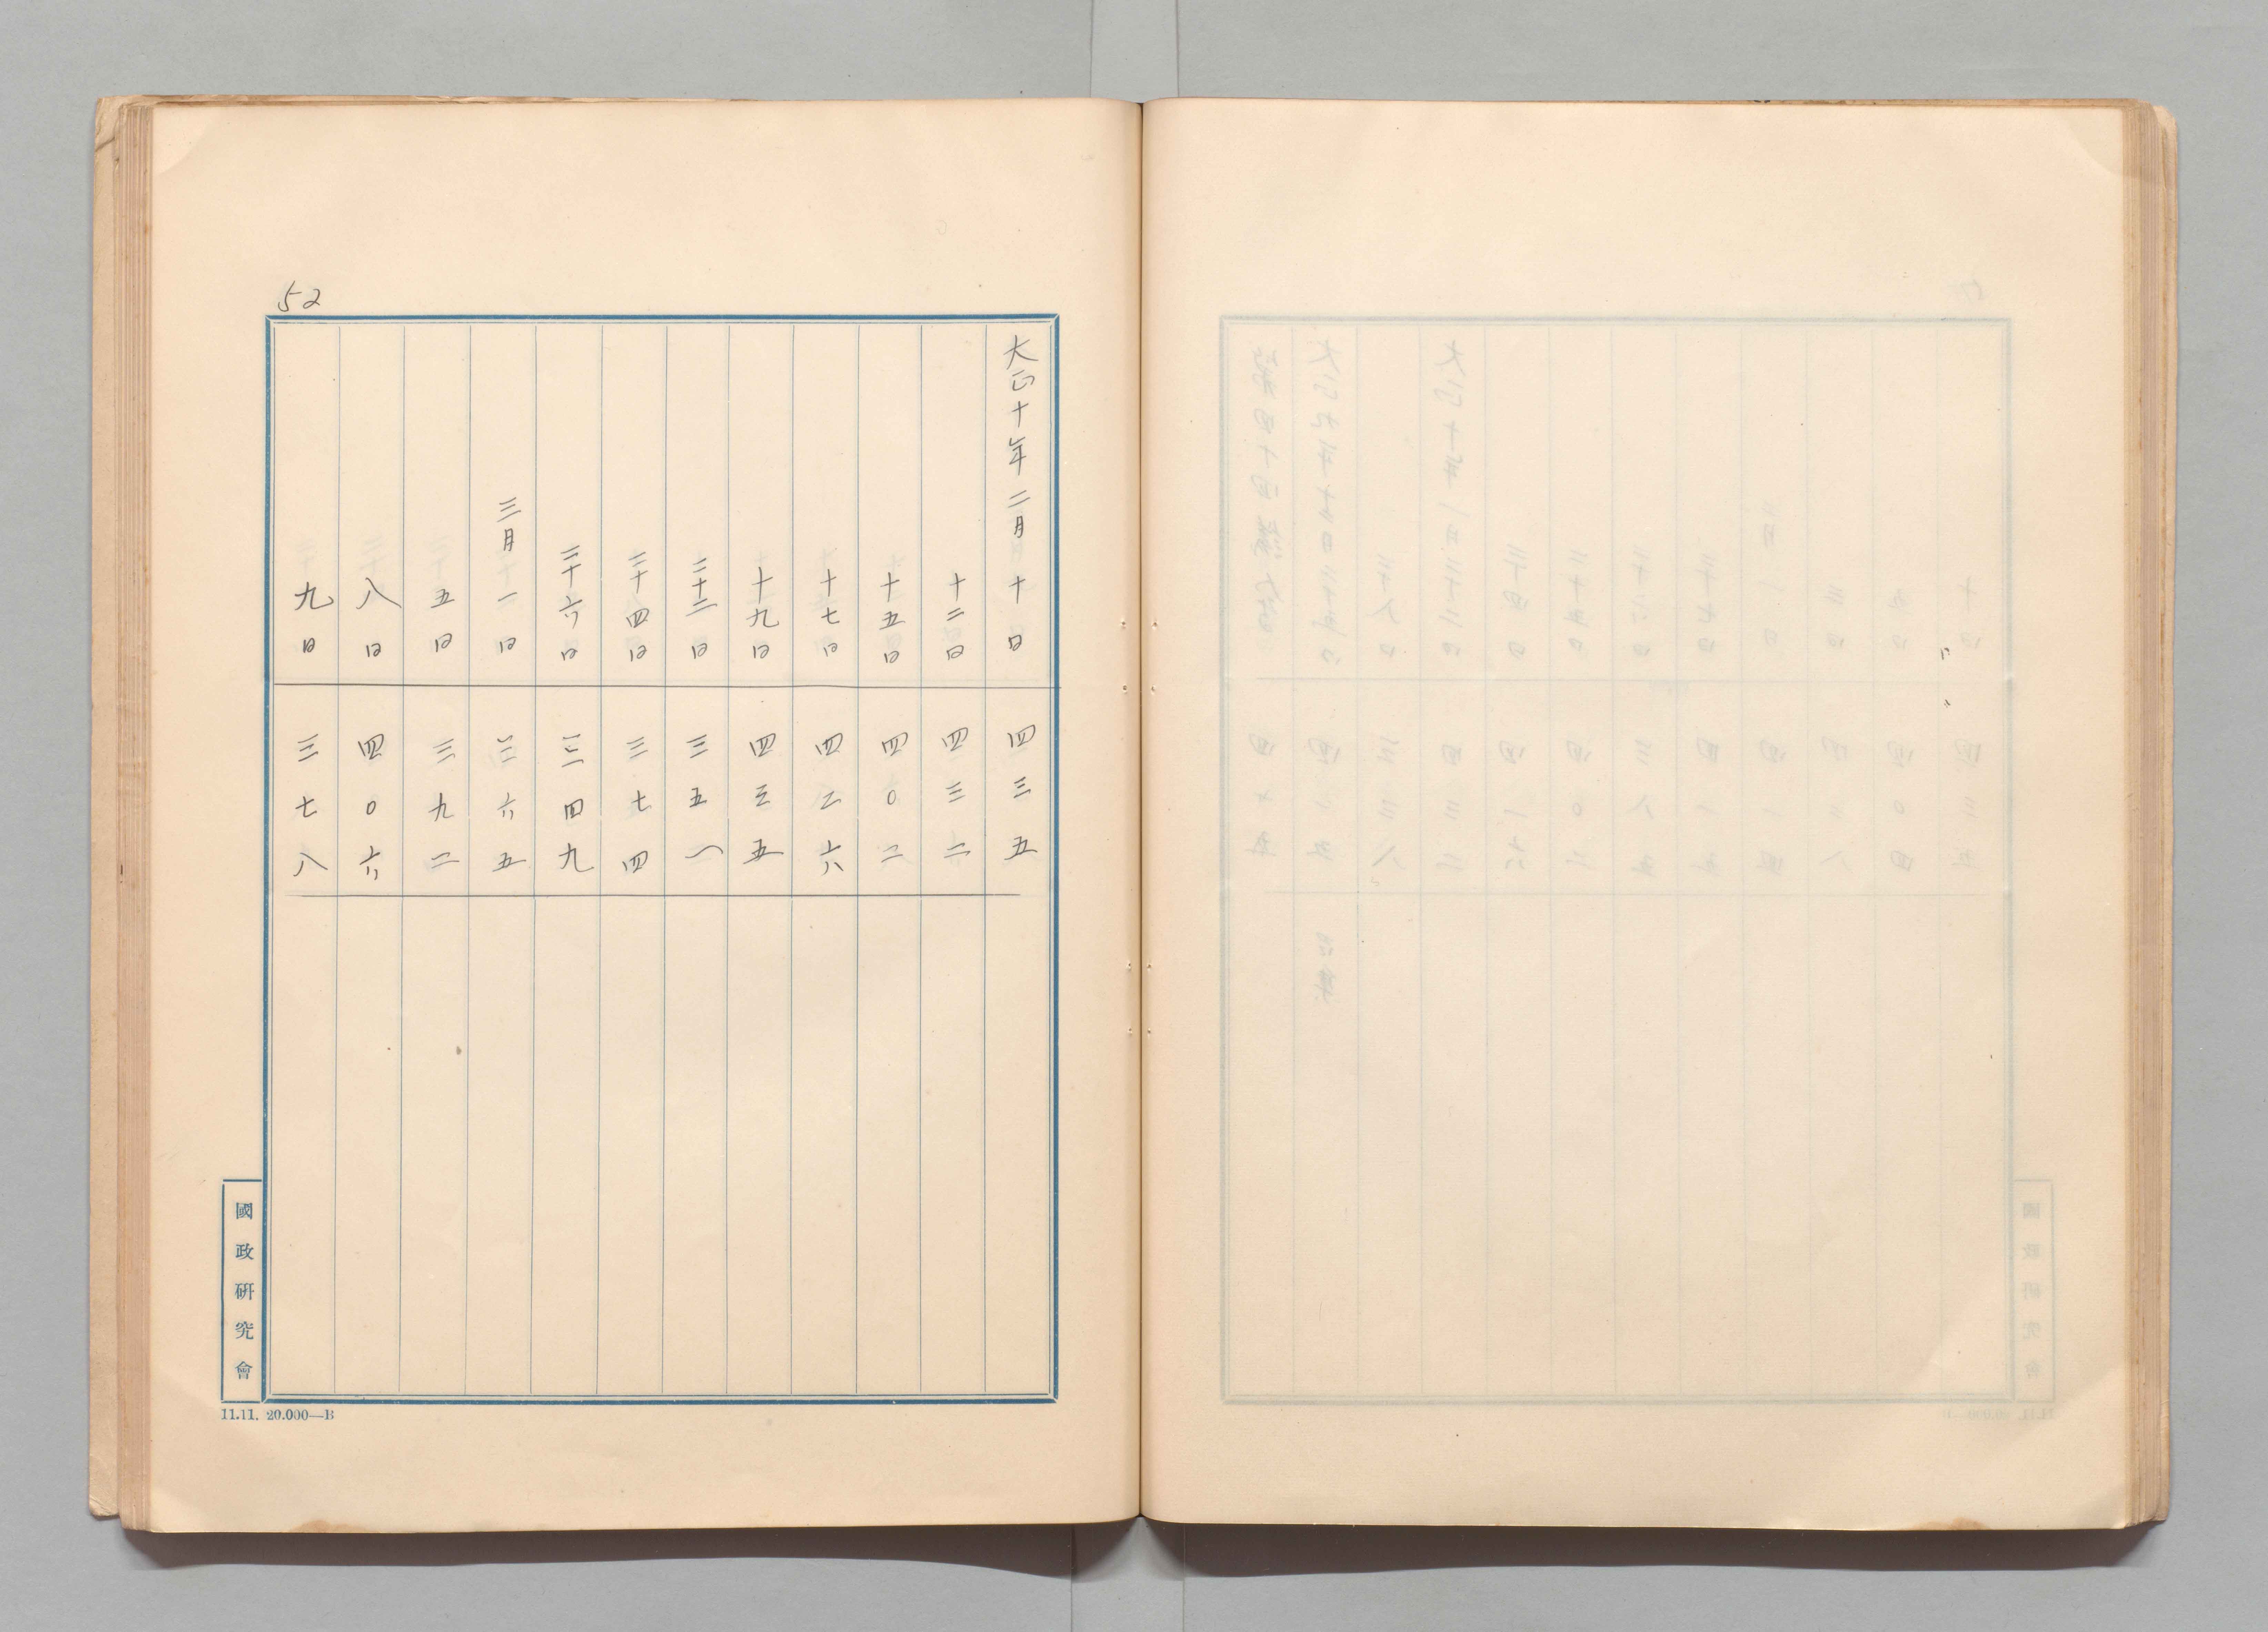 52
大正十年二月十日 四三五
十二日 四三二
十五日 四〇二
十七日 四二六
十九日 四三五
二十二日 三五一
二十四日 三七四
二十六日 三四九
三月一日 三六五
五日 三九二
八日 四〇六
九日 三七八
國政研究會
11.11. 20.000—B